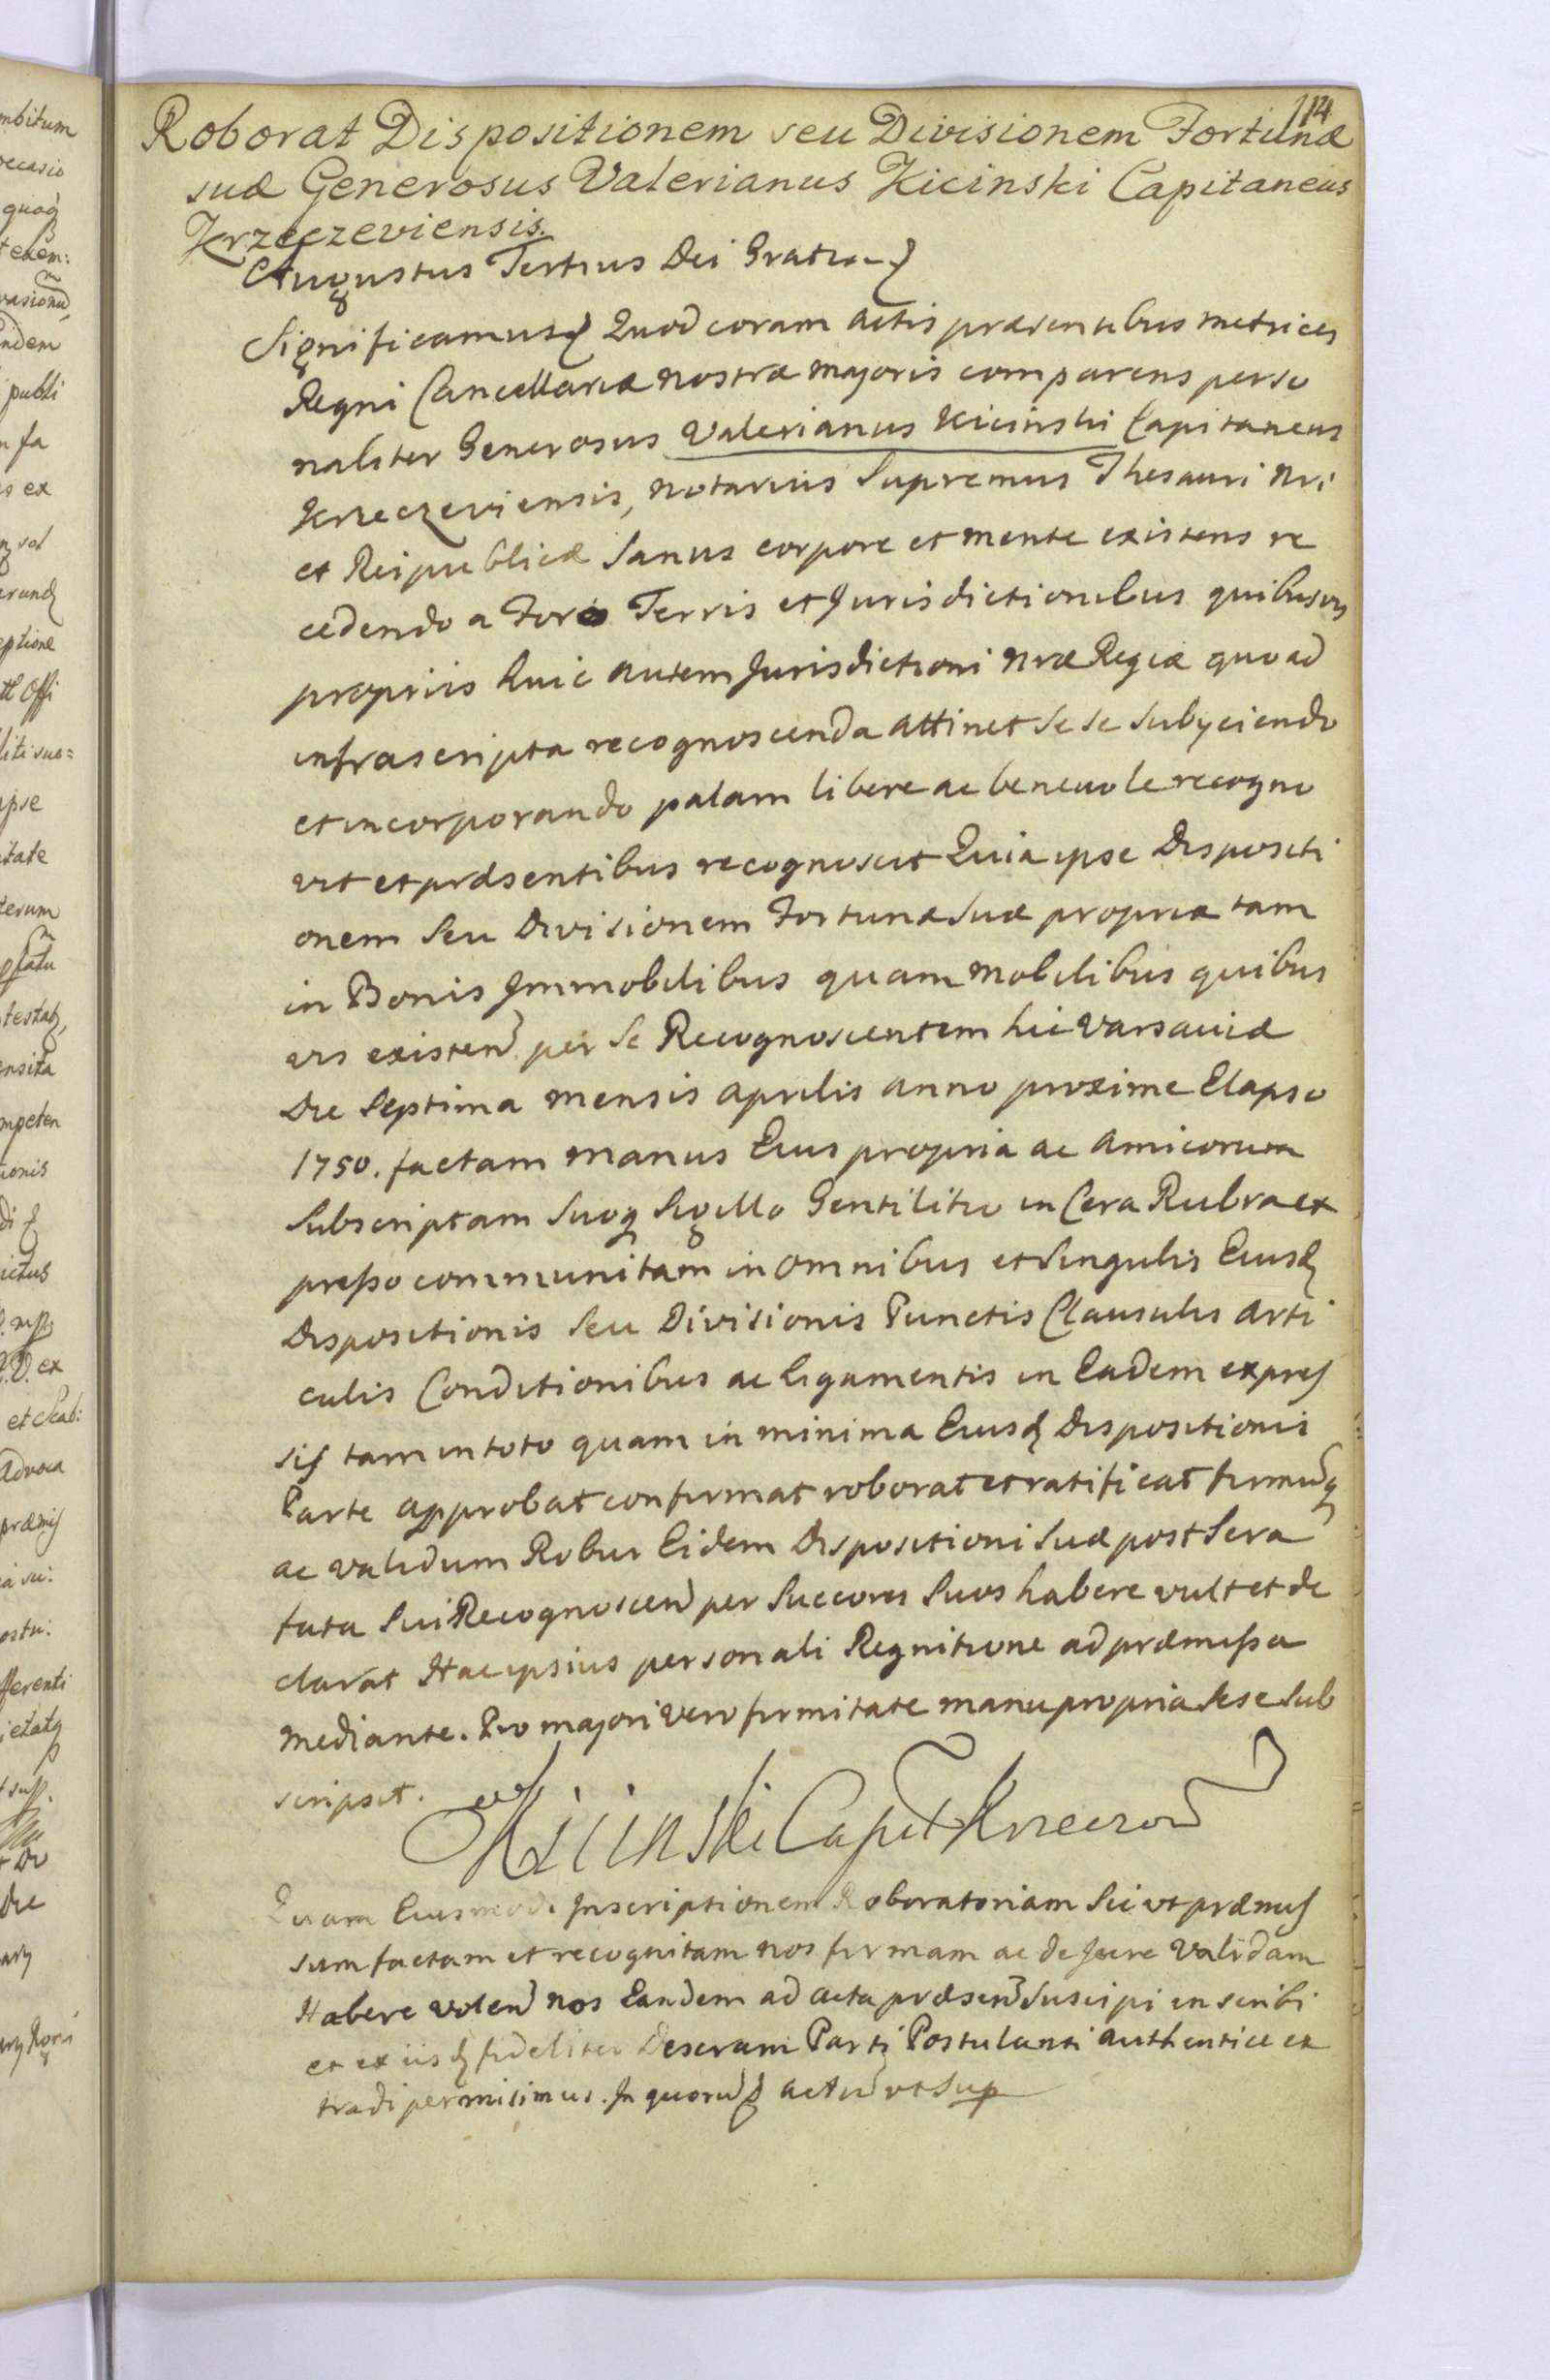 114
Roborat Dispositionem seu Divisionem Fortunæ
suæ Generosus Valerianus Kicinski Capitaneus
Krzeczeviensis.
Augustus Tertius Dei Gratia
Significamus Quod coram Actis præsentibus Metrices
Regni Cancellariæ nostræ majoris comparens perso
naliter Generosus Valerianus Kicinski Capitaneus
Krzeczeviensis, Notarius Supremus Thesauri Nri
et Reipublicæ Sanus corpore et mente existens re
cedendo a Foro Terris et Jurisdictionibus quibusvis
propriis huic autem Jurisdictioni Nræ Regiæ quoad
infrascripta recognoscenda attinet se se subyciendo
et incorporando palam libere ac benevole recogno
vit et præsentibus recognoscit Quia ipse Dispositi
onem seu Divisionem Fortunæ Suæ propriæ tam
in Bonis Immobilibus quam Mobilibus quibus
vis existen per Se Recognoscentem hic Varsaviæ
Die Septima mensis Aprilis anno proxime Elapso
1750. factam manus Eius propria ac Amicorum
Subscriptam Suoq Sigillo Gentilitio in Cera Rubra ex
presso communitam in omnibus et Singulis Eiusd
Dispositionis Seu Divisionis Punctis Clausulis Arti
culis Conditionibus ac ligamentis in Eadem expres
sis tam in toto quam in minima Eiusd Dispositionis
Parte approbat confirmat roborat et ratificat firmuq
ac validum Robur Eidem Dispositioni Suæ post Sera
fata Sui Recognoscen per Succores Suos habere vult et de
clarat Hac ipsius personali Regnitione ad præmissa
mediante. Pro majori vero firmitate manu propria Sese Sub
scripsit.
Kicinski Capit Krzeczow
Quam Eiusmodi Inscriptionem Roboratoriam Sic ut præmis
sum factam et recognitam nos firmam ac de Jure Validam
Habere volen nos Eandem ad acta præsen Suscipi inscribi
et ex iisd fideliter Deseram Parti Postulanti authentice ex
tradi permisimus. In quoru actu ut Sup